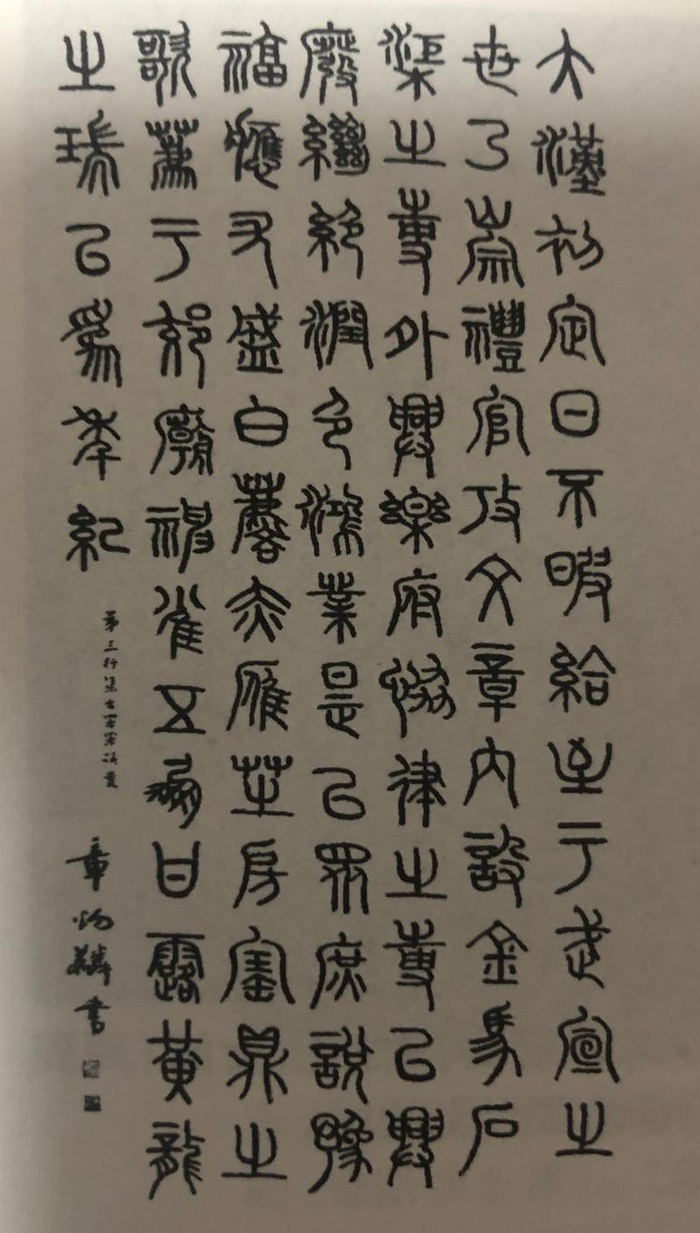 大漢初定日不暇給至于武宣之
世乃崇禮官攷文章內設金馬石
渠之事外興樂府協律之事以興
廢繼絕潤色鴻業是以眾庶說豫
福應尤盛白麟赤雁芝房寶鼎之
歌薦于郊廟神雀五鳳甘露黃龍
之瑞以為年紀
第三行渠
章炳麟書